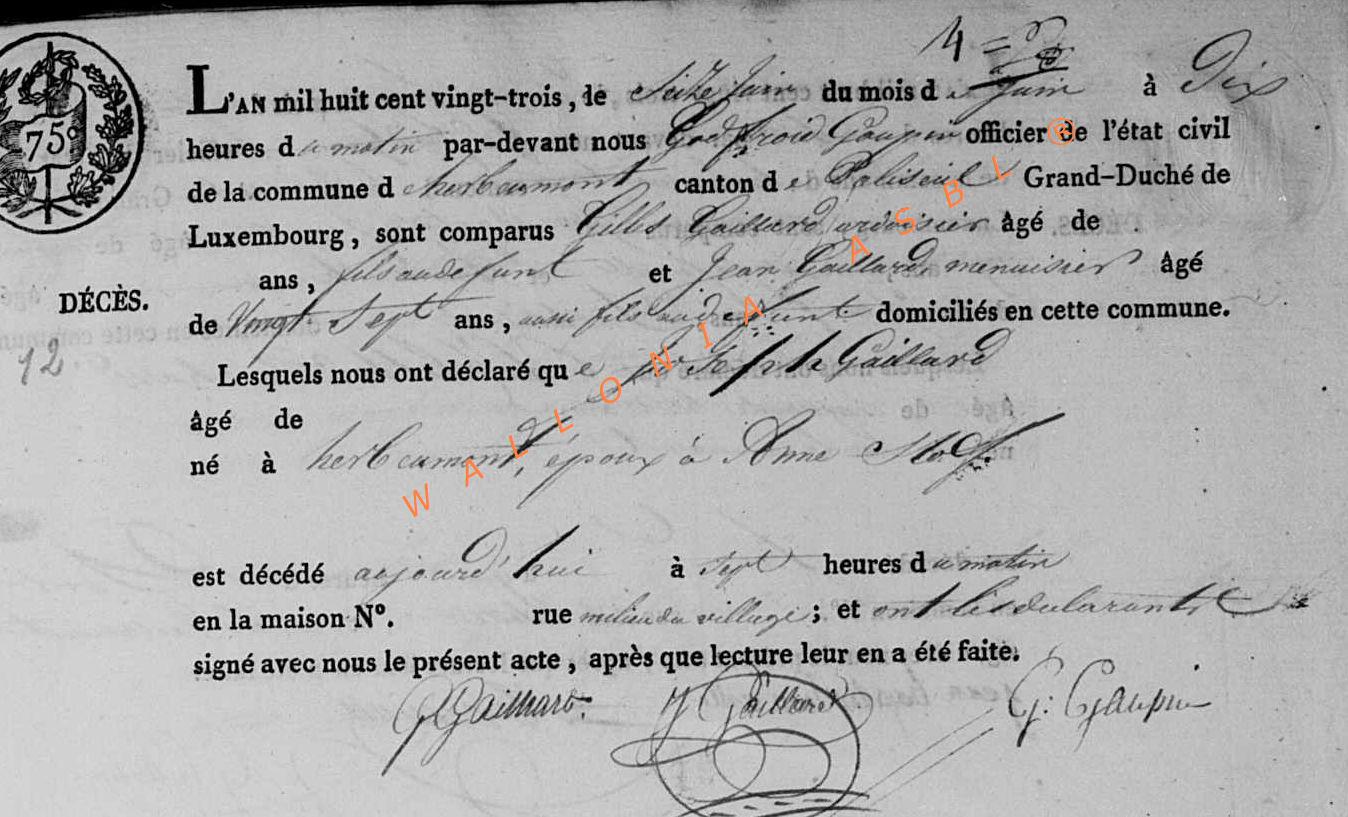 75c
L'AN mil huit cent vingt-trois, le Seize juin du mois de juin à Dix
heures du matin par-devant nous Godfroid Gaupin officier de l'état civil
de la commune d'herbeumont canton de Paliseul Grand-Duché de
Luxembourg, sont comparus Gilles Gaillard ardoisier âgé de
ans, fils au defunt et Jean Gaillard menuisier âgé
DÉCÈS.
de Vingt Sept ans, aussi fils au defunt domiciliés en cette commune.
12
Lesquels nous ont déclaré que joseph Gaillard
âgé de
né à herbeumont, époux à Anne
est décédé aujourd'hui à sept heures du matin
en la maison N°. rue milieu du village; et ont les declarants
signé avec nous le présent acte, après que lecture leur en a été faite.
G Gaillard J Gaillard G: Gaupin
WALLONIA ASBL ®